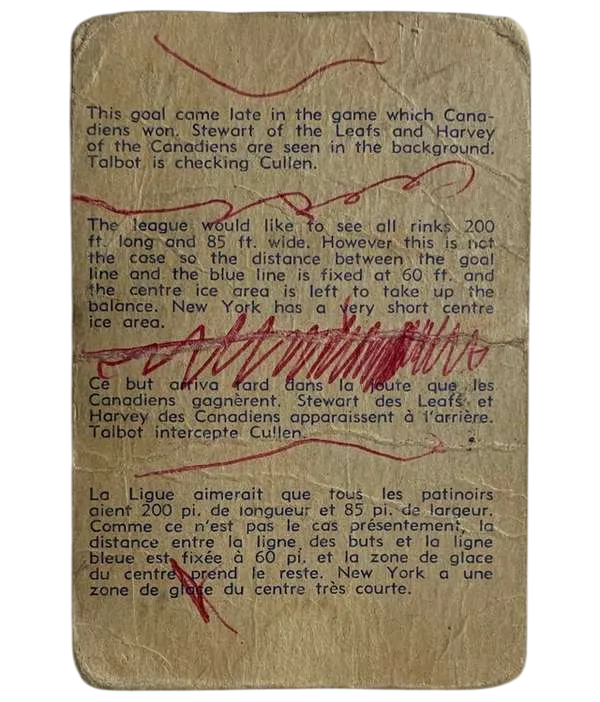 This goal came late in the game which Cana-
diens won. Stewart of the Leafs and Harvey
of the Canadiens are seen in the background.
Talbot is checking Cullen.
The league would like to see all rinks 200
ft. long and 85 ft. wide. However this is not
the case so the distance between the goal
line and the blue line is fixed at 60 ft. and
the centre ice area is left to take up the
balance. New York has a very short centre
ice area.
Ce but arriva tard dans la joute que les
Canadiens gagnèrent. Stewart des Leafs et
Harvey des Canadiens apparaissent à l'arrière.
Talbot intercepte Cullen.
La Ligue aimerait que tous les patinoirs
aient 200 pi. de longueur et 85 pi. de largeur.
Comme ce n'est pas le cas présentement, la
distance entre la ligne des buts et la ligne
bleue est fixée à 60 pi. et la zone de glace
du centre prend le reste. New York a une
zone de glace du centre très courte.